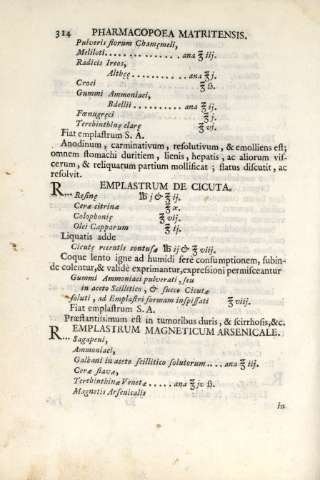 314 PHARMACOPOEA MATRITENSIS.
Pulveris florum Chamęmeli,
Meliloti................ ana ℥ iij.
Radicis Ireos,
Altheę........... ana ℥ j.
Croci ℥ ß.
Gummi Ammoniaci,
Bdellii........... ana ℥ ij.
Fœnugręci ℥ j.
Terebinthinę clarę ℥ vj.
Fiat emplastrum S. A.
Anodinum, carminativum, resolutivum, & emolliens est;
omnem stomachi duritiem, lienis, hepatis, ac aliorum vis-
cerum, & reliquarum partium mollificat; flatus discutit, ac
resolvit.
EMPLASTRUM DE CICUTA.
R... Resinę ℔ j & ℥ ij.
Cerę citrinę ℥ ix.
Colophonię ℥ vij.
Olei Capparum ℥ ij.
Liquatis adde
Cicutę recentis contusę ℔ iij & ℥ viij.
Coque lento igne ad humidi ferè consumptionem, subin-
de colentur, & validè exprimantur, expressioni permisceantur
Gummi Ammoniaci pulverati, seu
in aceto Scillitico, & succo Cicutæ
soluti, ad Emplastri formam inspissati ℥ viij.
Fiat emplastrum S. A.
Præstantissimum est in tumoribus duris, & scirrhosis, &c.
EMPLASTRUM MAGNETICUM ARSENICALE.
R... Sagapeni,
Ammoniaci,
Galbani in aceto scillitico solutorum.... ana ℥ iij.
Ceræ flavæ,
Terebinthinæ Venetæ...... ana ℥ jv ß.
Magnetis Arsenicalis
in